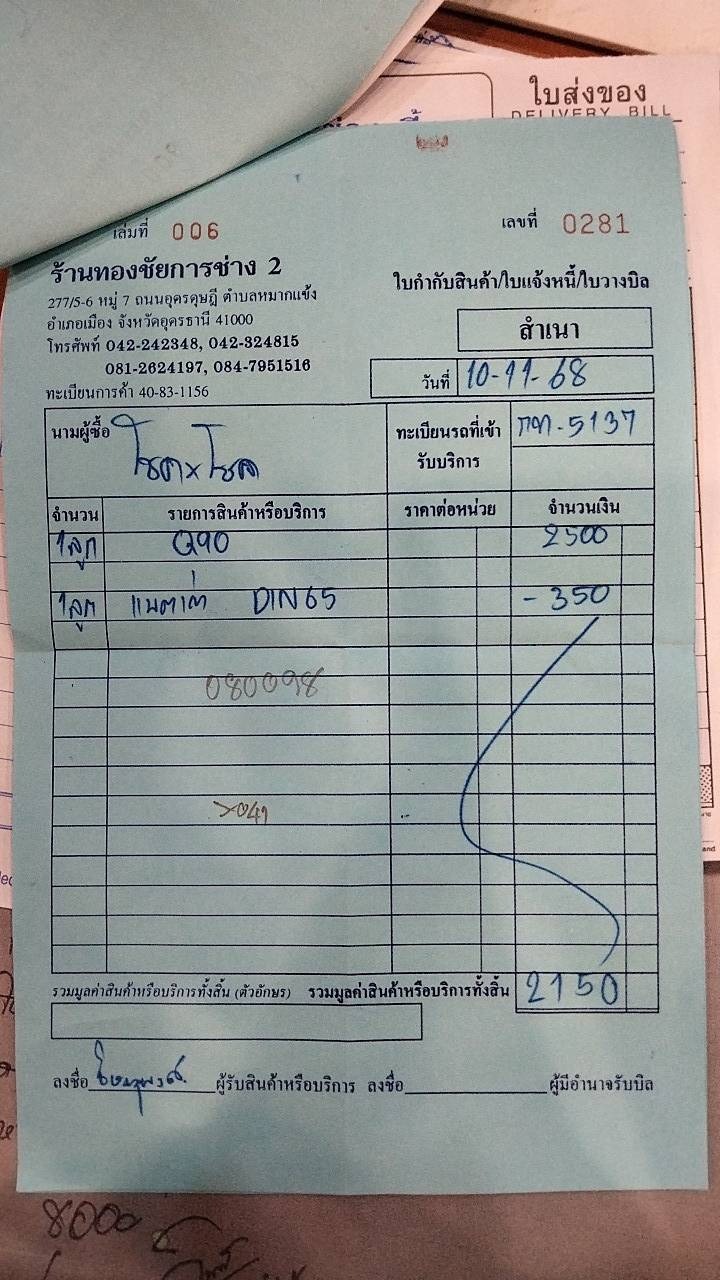 ใบส่งของ
DELIVERY BILL
เล่มที่ 006
เลขที่ 0281
ร้านทองชัยการช่าง 2
277/5-6 หมู่ 7 ถนนอุดรดุษฎี ตำบลหมากแข้ง
อำเภอเมือง จังหวัดอุดรธานี 41000
โทรศัพท์ 042-242348, 042-324815
081-2624197, 084-7951516
ทะเบียนการค้า 40-83-1156
ใบกำกับสินค้า/ใบแจ้งหนี้/ใบวางบิล
สำเนา
วันที่ 10-11-68
นามผู้ซื้อ โชค x โชค
ทะเบียนรถที่เข้ารับบริการ 5137
จำนวน รายการสินค้าหรือบริการ ราคาต่อหน่วย จำนวนเงิน
1ลูก Q90 2500
1ลูก แบตเก่า DIN65 -350
080098
2150
รวมมูลค่าสินค้าหรือบริการทั้งสิ้น (ตัวอักษร) รวมมูลค่าสินค้าหรือบริการทั้งสิ้น
ลงชื่อ ผู้รับสินค้าหรือบริการ ลงชื่อ ผู้มีอำนาจรับบิล
8000